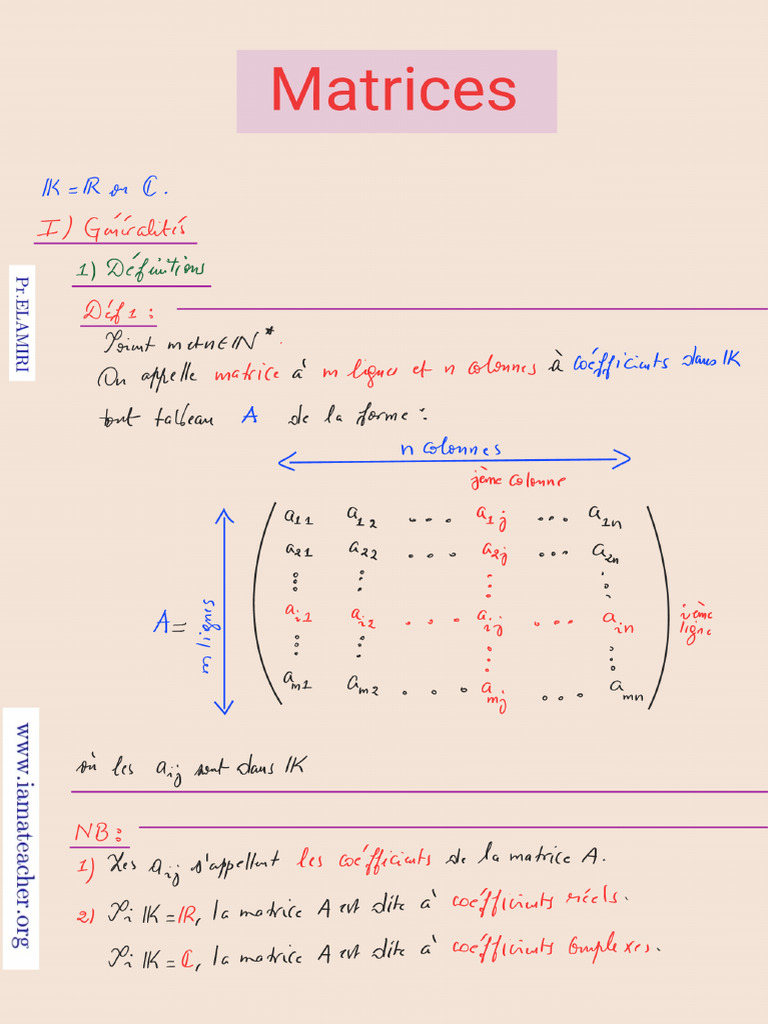 Matrices
𝕂 = ℝ ou ℂ.
I) Généralités
1) Définitions
Déf 1 :
Soient m et n ∈ ℕ*.
On appelle matrice à m lignes et n colonnes à coéfficients dans 𝕂
tout tableau A de la forme :
n colonnes
jème colonne
a11 a12 ... a1j ... a1n
a21 a22 ... a2j ... a2n
⋮ ⋮ ⋮ ⋮
A = m lignes ai1 ai2 ... aij ... ain ième ligne
⋮ ⋮ ⋮ ⋮
am1 am2 ... amj ... amn
où les aij sont dans 𝕂
NB :
1) Les aij s'appellent les coéfficients de la matrice A.
2) Si 𝕂 = ℝ, la matrice A est dite à coéfficients réels.
Si 𝕂 = ℂ, la matrice A est dite à coéfficients complexes.
Pr.ELAMIRI
www.iamateacher.org